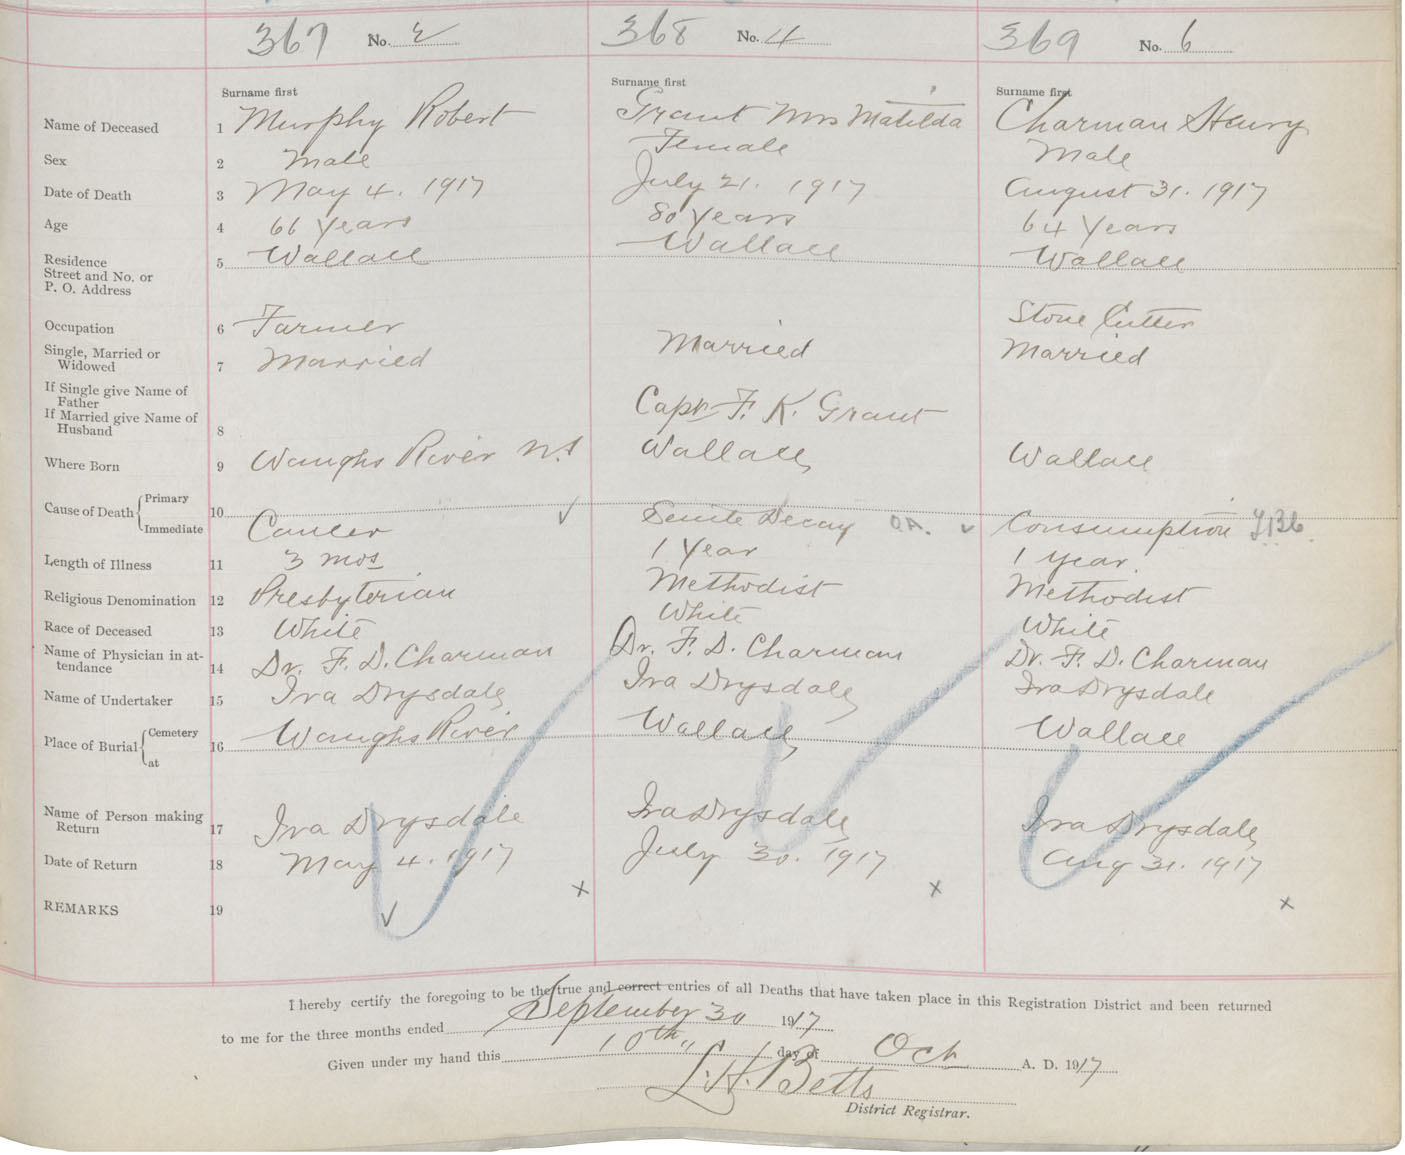 367 No. 2 368 No. 4 369 No. 6
Surname first Surname first Surname first
Name of Deceased 1 Murphy Robert Grant Mrs Matilda Charman Henry
Sex 2 Male Female Male
Date of Death 3 May 4. 1917 July 21. 1917 August 31. 1917
Age 4 66 Years 80 Years 64 Years
Residence Street and No. or P. O. Address 5 Wallace Wallace Wallace
Occupation 6 Farmer Stone Cutter
Single, Married or Widowed 7 Married Married Married
If Single give Name of Father
If Married give Name of Husband 8 Capt F. K. Grant
Where Born 9 Waughs River N.S Wallace Wallace
Cause of Death { Primary Immediate 10 Cancer Senile Decay O.A. Consumption
Length of Illness 11 3 mos 1 Year 1 year.
Religious Denomination 12 Presbyterian Methodist Methodist
Race of Deceased 13 White White White
Name of Physician in at-tendance 14 Dr. F. D. Charman Dr. F. D. Charman Dr. F. D. Charman
Name of Undertaker 15 Ira Drysdale Ira Drysdale Ira Drysdale
Place of Burial { Cemetery at 16 Waughs River Wallace Wallace
Name of Person making Return 17 Ira Drysdale Ira Drysdale Ira Drysdale
Date of Return 18 May 4. 1917 July 30. 1917 Aug 31. 1917
REMARKS 19 x x x
I hereby certify the foregoing to be the true and correct entries of all Deaths that have taken place in this Registration District and been returned
to me for the three months ended September 30 1917
Given under my hand this 10th day of Oct A. D. 1917
L. H. Betts
District Registrar.